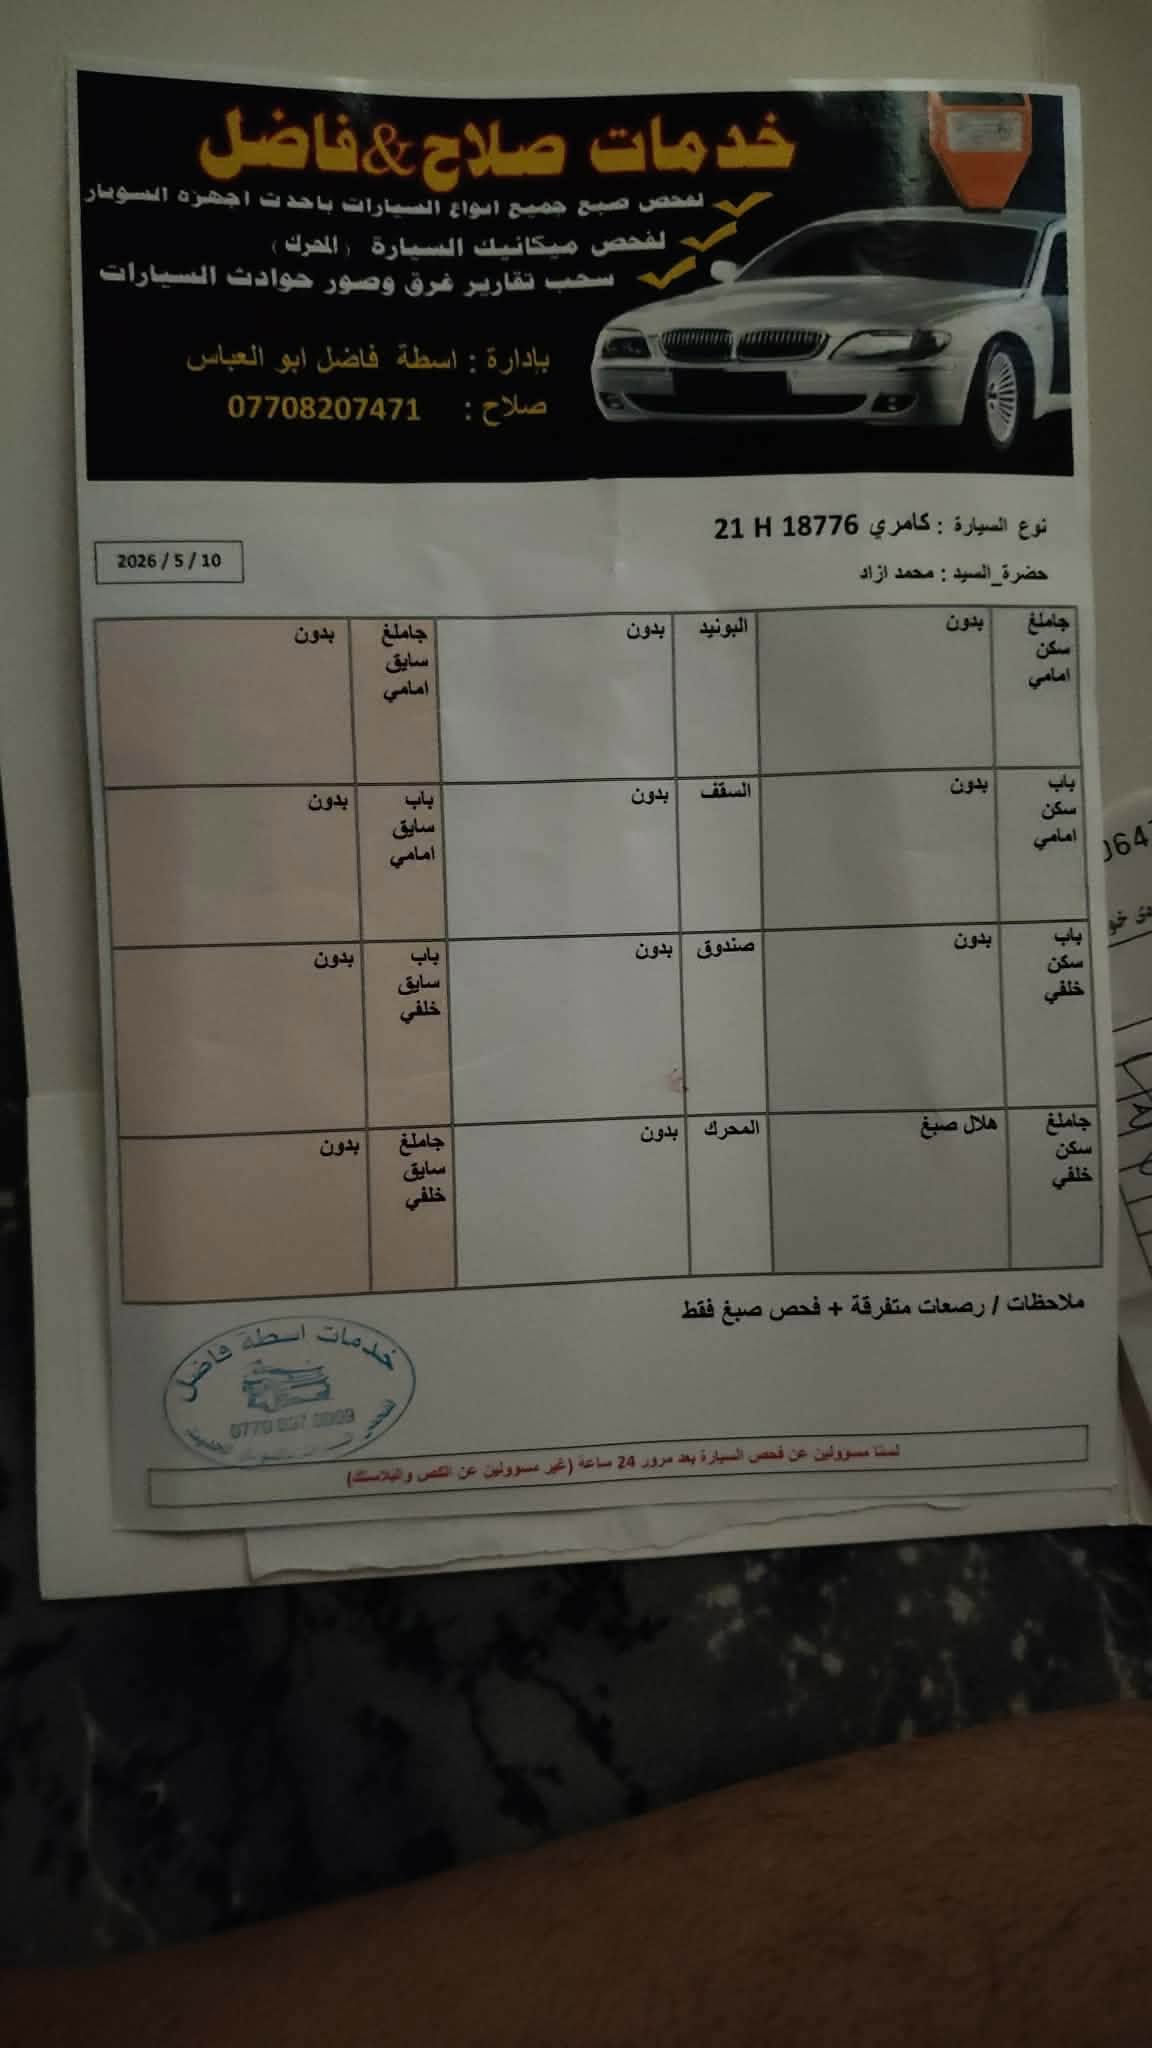 خدمات صلاح&فاضل
لفحص صبغ جميع انواع السيارات باحدث اجهزة السونار
لفحص ميكانيك السيارة (المحرك)
سحب تقارير غرق وصور حوادث السيارات
بإدارة : اسطة فاضل ابو العباس
صلاح : 07708207471
نوع السيارة : كامري 21 H 18776
2026 / 5 / 10
حضرة_السيد : محمد ازاد
جاملغ سكن امامي بدون البونيد بدون جاملغ سايق امامي بدون
باب سكن امامي بدون السقف بدون باب سايق امامي بدون
باب سكن خلفي بدون صندوق بدون باب سايق خلفي بدون
جاملغ سكن خلفي هلال صبغ المحرك بدون جاملغ سايق خلفي بدون
ملاحظات / رصعات متفرقة + فحص صبغ فقط
خدمات اسطة فاضل
لسنا مسوولين عن فحص السيارة بعد مرور 24 ساعة (غير مسوولين عن الكص والبلاستك)